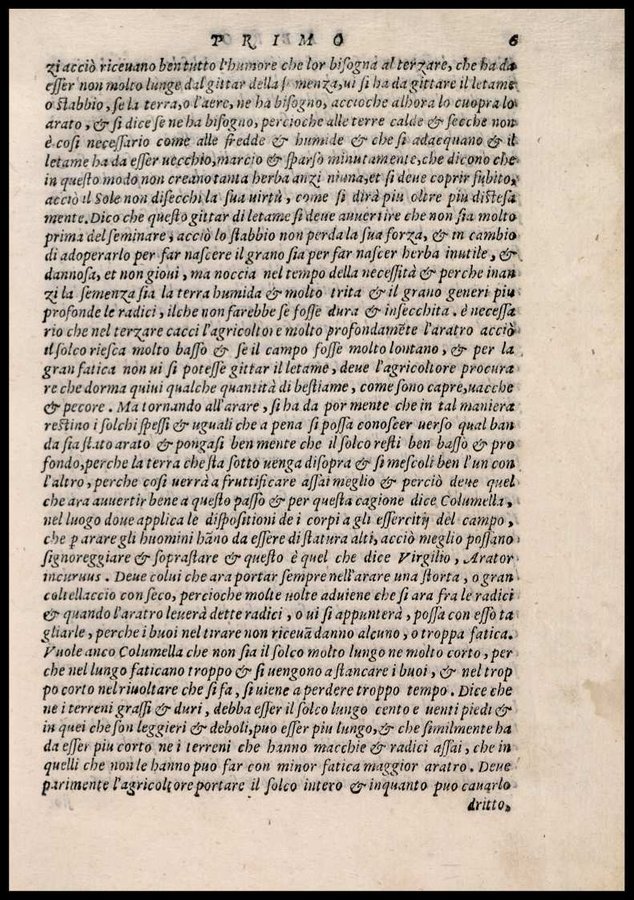 PRIMO 6
zi acciò riceuano ben tutto l'humore che lor bisogna al terzare, che ha da
esser non molto lunge dal gittar della menza, ui si ha da gittare il letame
o stabbio, se la terra, o l'aere, ne ha bisogno, accioche alhora lo cuopra lo
arato, & si dice se ne ha bisogno, percioche alle terre calde & secche non
è cosi necessario come alle fredde & humide & che si adacquano & il
letame ha da esser uecchio, marcio & sparso minutamente, che dicono che
in questo modo non creano tanta herba anzi niuna, et si deue coprir subito,
acciò il Sole non disecchi la sua uirtù, come si dirà piu oltre piu distesa
mente. Dico che questo gittar di letame si deue auuertire che non sia molto
prima del seminare, acciò lo stabbio non perda la sua forza, & in cambio
di adoperarlo per far nascere il grano sia per far nascer herba inutile, &
dannosa, et non gioui, ma noccia nel tempo della necessità & perche inan
zi la semenza sia la terra humida & molto trita & il grano generi piu
profonde le radici, ilche non farebbe se fosse dura & insecchita. è necessa
rio che nel terzare cacci l'agricoltore molto profondamēte l'aratro acciò
il solco riesca molto basso & se il campo fosse molto lontano, & per la
gran fatica non ui si potesse gittar il letame, deue l'agricoltore procura
re che dorma quiui qualche quantità di bestiame, come sono capre, uacche
& pecore. Ma tornando all'arare, si ha da por mente che in tal maniera
restino i solchi spessi & uguali che a pena si possa conoscer uerso qual ban
da sia stato arato & pongasi ben mente che il solco resti ben basso & pro
fondo, perche la terra che sta sotto uenga disopra & si mescoli ben l'un con
l'altro, perche cosi uerrà a fruttificare assai meglio & perciò deue quel
che ara auuertir bene a questo passo & per questa cagione dice Columella,
nel luogo doue applica le dispositioni de i corpi a gli essercitij del campo,
che p arare gli huomini hāno da essere di statura alti, acciò meglio possano
signoreggiare & soprastare & questo è quel che dice Virgilio, Arator
incuruus. Deue colui che ara portar sempre nell'arare una storta, o gran
coltellaccio con seco, percioche molte uolte aduiene che si ara fra le radici
& quando l'aratro leuerà dette radici, o ui si appunterà, possa con esso ta
gliarle, perche i buoi nel tirare non riceuā danno alcuno, o troppa fatica.
Vuole anco Columella che non sia il solco molto lungo ne molto corto, per
che nel lungo faticano troppo & si uengono a stancare i buoi, & nel trop
po corto nel riuoltare che si fa, si uiene a perdere troppo tempo. Dice che
ne i terreni grassi & duri, debba esser il solco lungo cento e uenti piedi &
in quei che son leggieri & deboli, puo esser piu lungo, & che similmente ha
da esser piu corto ne i terreni che hanno macchie & radici assai, che in
quelli che non le hanno puo far con minor fatica maggior aratro. Deue
parimente l'agricoltore portare il solco intero & inquanto puo cauarlo
dritto,